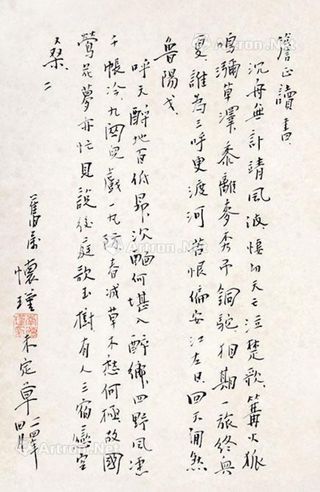 詹正讀書
沉毋無計靖風波悽切天々泣楚歌篝火狐
鳴瀰草澤黍離麥秀弔銅駝相期一旅終興
夏誰為三呼更渡河苦恨偏安江左日四天
魯陽戈
呼天醉地百低昂沈酗何堪入醉鄉四野風
千帳冷九國兒戲一九際春減草木愁何極故國
鶯花夢亦忙見說後庭歌玉樹有人三宿戀空
桑 二
舊屋 懷瑾 未定草
Artron.Net